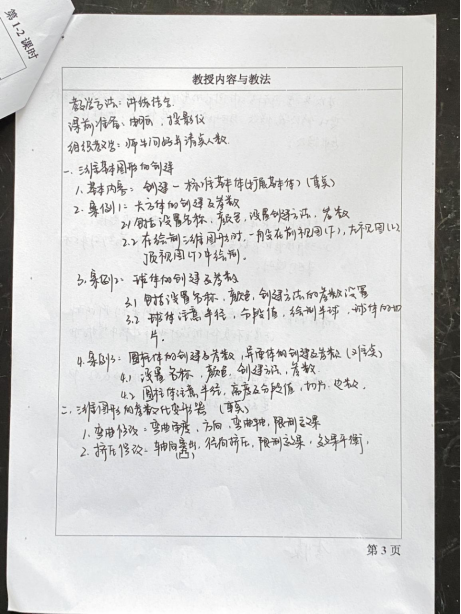 第1-2课时
教授内容与教法
教学方法：讲练结合
课前准备：电脑，投影仪
组织教学：师生问好并清点人数
一、三维基本图形的创建
1. 基本内容：创建一标准基本体（扩展基本体）（重点）
2. 案例1：长方体的创建及参数
2.1 包括设置名称，颜色，设置创建方法，参数
2.2 在绘制三维图形时，一般在前视图(F)，左视图(L)
顶视图(T)中绘制.
3. 案例2：球体的创建及参数
3.1 包括设置名称，颜色，创建方法的参数设置
3.2 球体注意半径，分段值，绘制半球，球体的切
片.
4. 案例3：圆柱体的创建及参数，异面体的创建及参数（难点）
4.1 设置名称，颜色，创建方法，参数.
4.2 圆柱体注意半径，高度及分段值，切片，边数.
二、三维图形的参数化变形器（重点）
1. 弯曲修改：弯曲角度，方向，弯曲轴，限制效果
2. 挤压修改：轴向凸出，径向挤压，限制效果，效果平衡，
(凸)
第 3 页